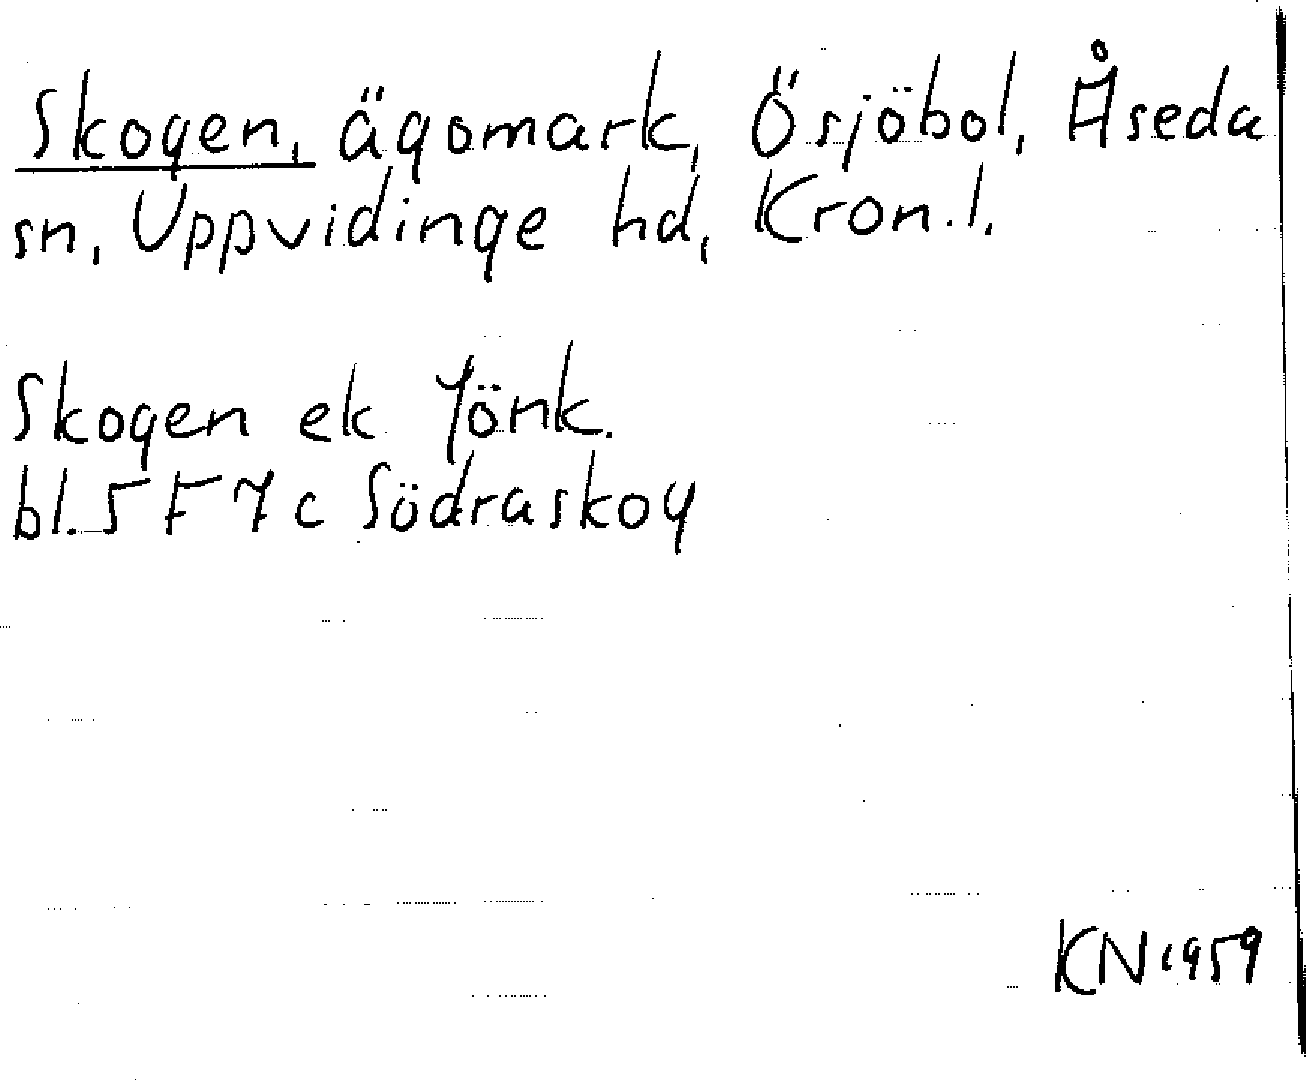 Skogen, ägomark, Ösjöbol, Åseda
sn, Uppvidinge hd, Kron.l.
Skogen ek Jönk.
bl. 5 F 7 c Södraskog
KN 1959